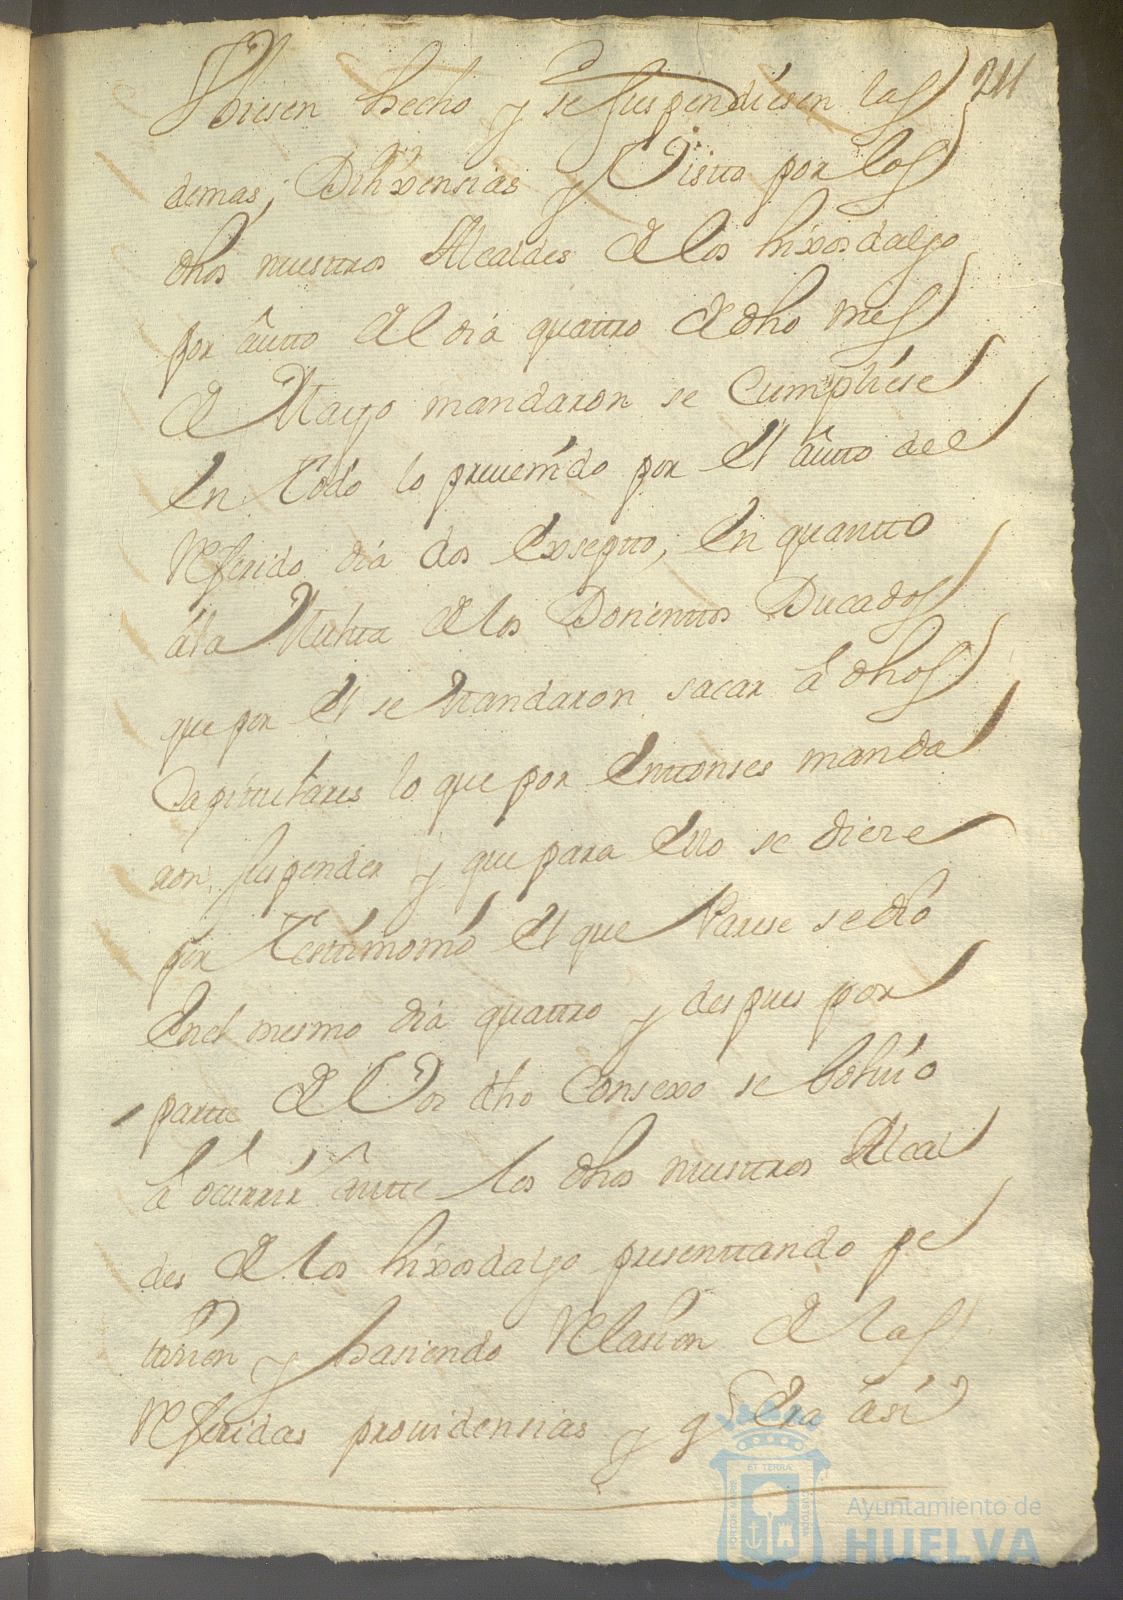 211
Vbiesen hecho y se suspendiesen las
demas, Dilixensias y Visto por los
dhos nuestros Alcaldes de los hixosdalgo
por autto del dia quattro de dho mes
de Mayo mandaron se Cumpliese
En Todo lo preuenido por El autto del
Referido dia dos Exsepto, En quantto
ala Multa de los Dosientos Ducados
que por El se Mandaron sacar â dhos
Capitulares lo que por Enttonses manda
ron, suspender y que para Ello se diere
por Testimonio El que Parese se dio
En el mesmo dia quattro y despues por
partte de Vos dho Consexo se bolbio
â ocurrir antte los dhos nuestros Alcal
des de los hixosdalgo presenttando pe
tision y hasiendo Relasion de las
Referidas prouidensias y q Era asi
Ayuntamiento de
HUELVA